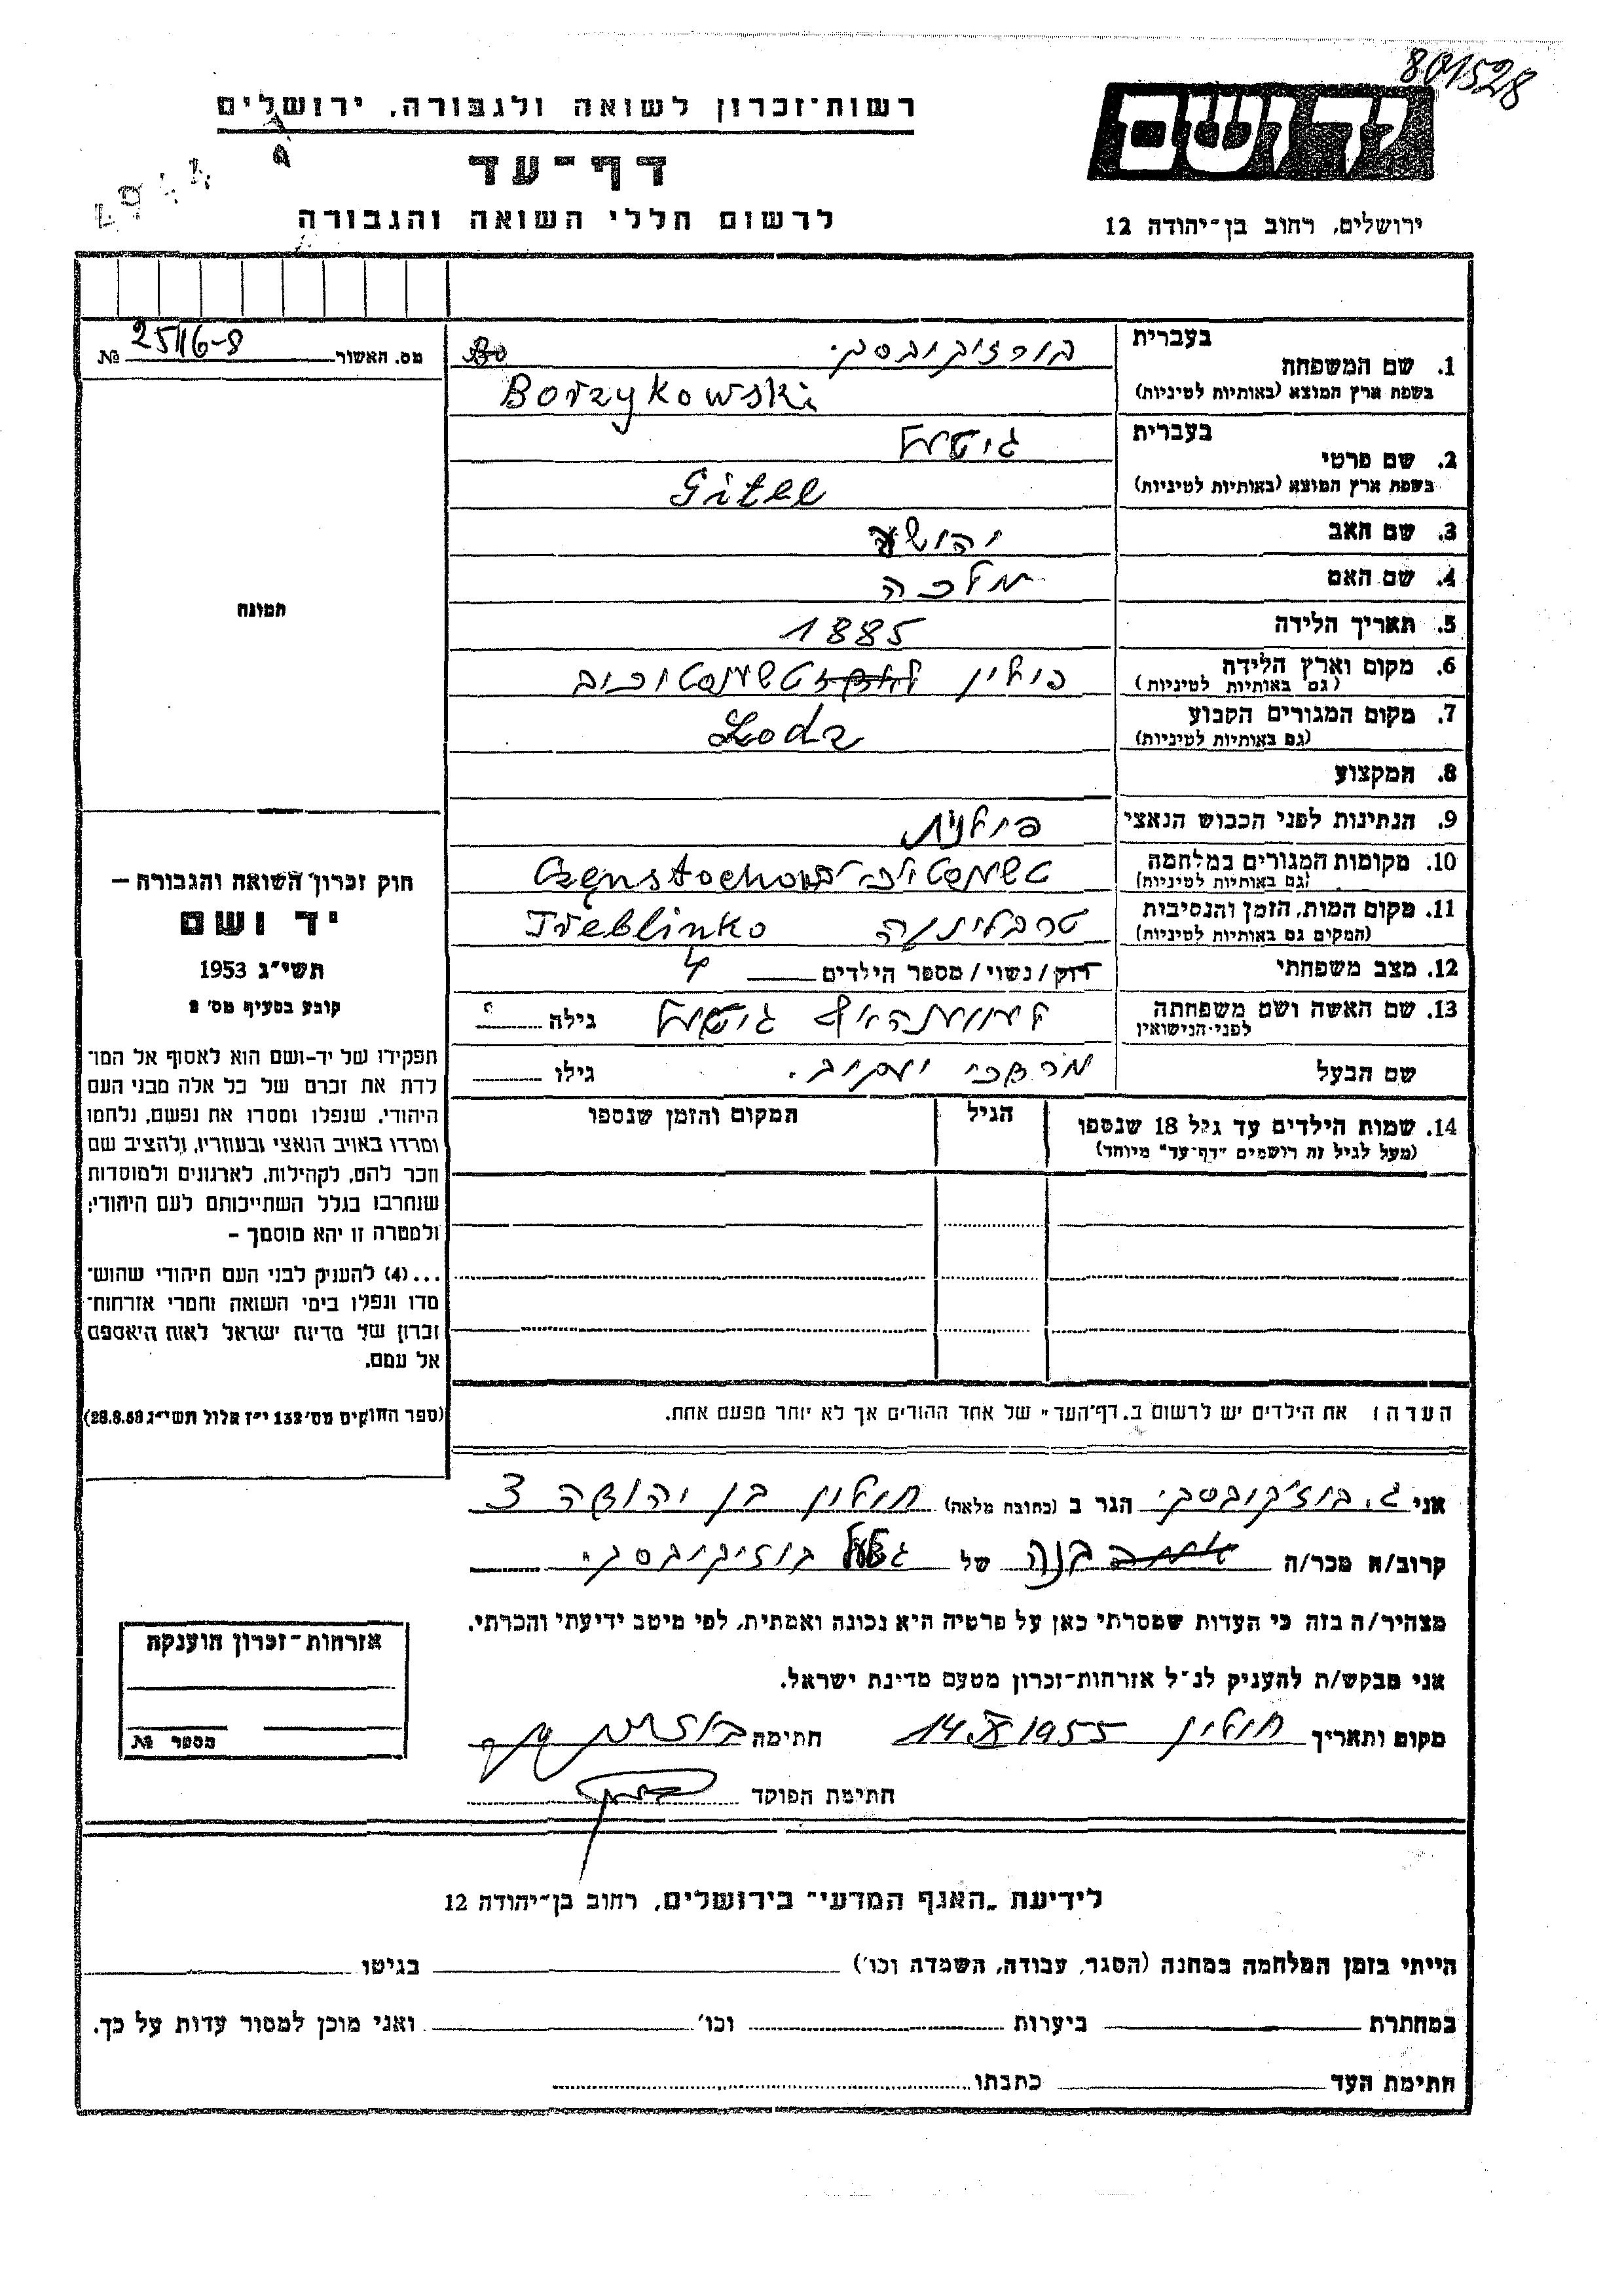 801528
רשות-זכרון לשואה ולגבורה, ירושלים
יד ושם
דף-עד
לרשום חללי השואה והגבורה
ירושלים, רחוב בן-יהודה 12
בעברית
1. שם המשפחה
בשפת ארץ המוצא (באותיות לטיניות)
בורזיקובסקי
Borzykowski
בעברית
2. שם פרטי
בשפת ארץ המוצא (באותיות לטיניות)
גיטעל
Gitel
3. שם האב יהושע
4. שם האם מלכה
5. תאריך הלידה 1885
6. מקום וארץ הלידה
(גם באותיות לטיניות)
פולין טשעסטוכוב
7. מקום המגורים הקבוע
(גם באותיות לטיניות)
Lodz
8. המקצוע
9. הנתינות לפני הכבוש הנאצי פולנית
10. מקומות המגורים במלחמה
(גם באותיות לטיניות)
Częnstochow
11. מקום המות, הזמן והנסיבות
(המקום גם באותיות לטיניות)
טרבלינקה Treblinko
12. מצב משפחתי רווק/נשוי/מספר הילדים 4
13. שם האשה ושם משפחתה
לפני-הנישואין
גיטעל גילה
שם הבעל מרדכי יעקוב. גילו
14. שמות הילדים עד גיל 18 שנספו
(מעל לגיל זה רושמים "דף-עד" מיוחד)
הגיל
המקום והזמן שנספו
הערה: את הילדים יש לרשום ב„דף-העד" של אחד ההורים אך לא יותר מפעם אחת.
מס. האשור 25116-8 №
תמונה
חוק זכרון השואה והגבורה –
יד ושם
תשי"ג 1953
קובע בסעיף מס' 2
תפקידו של יד-ושם הוא לאסוף אל המו-
לדת את זכרם של כל אלה מבני העם
היהודי, שנפלו ומסרו את נפשם, נלחמו
ומרדו באויב הנאצי ובעוזריו, ולהציב שם
וזכר להם, לקהילות, לארגונים ולמוסדות
שנחרבו בגלל השתייכותם לעם היהודי;
ולמטרה זו יהא מוסמך –
...(4) להעניק לבני העם היהודי שהוש-
מדו ונפלו בימי השואה והמרי אזרחות-
זכרון של מדינת ישראל לאות היאספם
אל עמם.
(ספר החוקים מס' 132 י"ז אלול תשי"ג 28.8.53)
אני ג. בוז'קובסקי הגר ב (כתובת מלאה) חולון בן יהודה 3
קרוב/ה מכר/ה בנה של גיטעל בוזיקובסקי.
מצהיר/ה בזה כי העדות שמסרתי כאן על פרטיה היא נכונה ואמתית, לפי מיטב ידיעתי והכרתי.
אני מבקש/ת להעניק לנ"ל אזרחות-זכרון מטעם מדינת ישראל.
מקום ותאריך חולון 14.IX 1955 חתימה
חתימת הפוקד
אזרחות-זכרון הוענקה
מספר №
לידיעת „האגף המדעי" בירושלים, רחוב בן-יהודה 12
הייתי בזמן המלחמה במחנה (הסגר, עבודה, השמדה וכו') בגיטו
במחתרת ביערות וכו' ואני מוכן למסור עדות על כך.
חתימת העד כתבתו